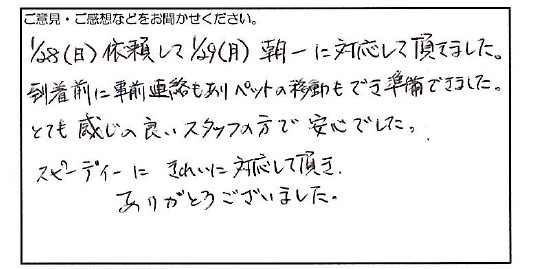 ご意見・ご感想などをお聞かせください。
1/28(日)依頼して1/29(月)朝一に対応して頂きました。
到着前に事前連絡もありペットの移動もでき準備できました。
とても感じの良いスタッフの方で安心でした。
スピーディーにきれいに対応して頂き、
ありがとうございました。